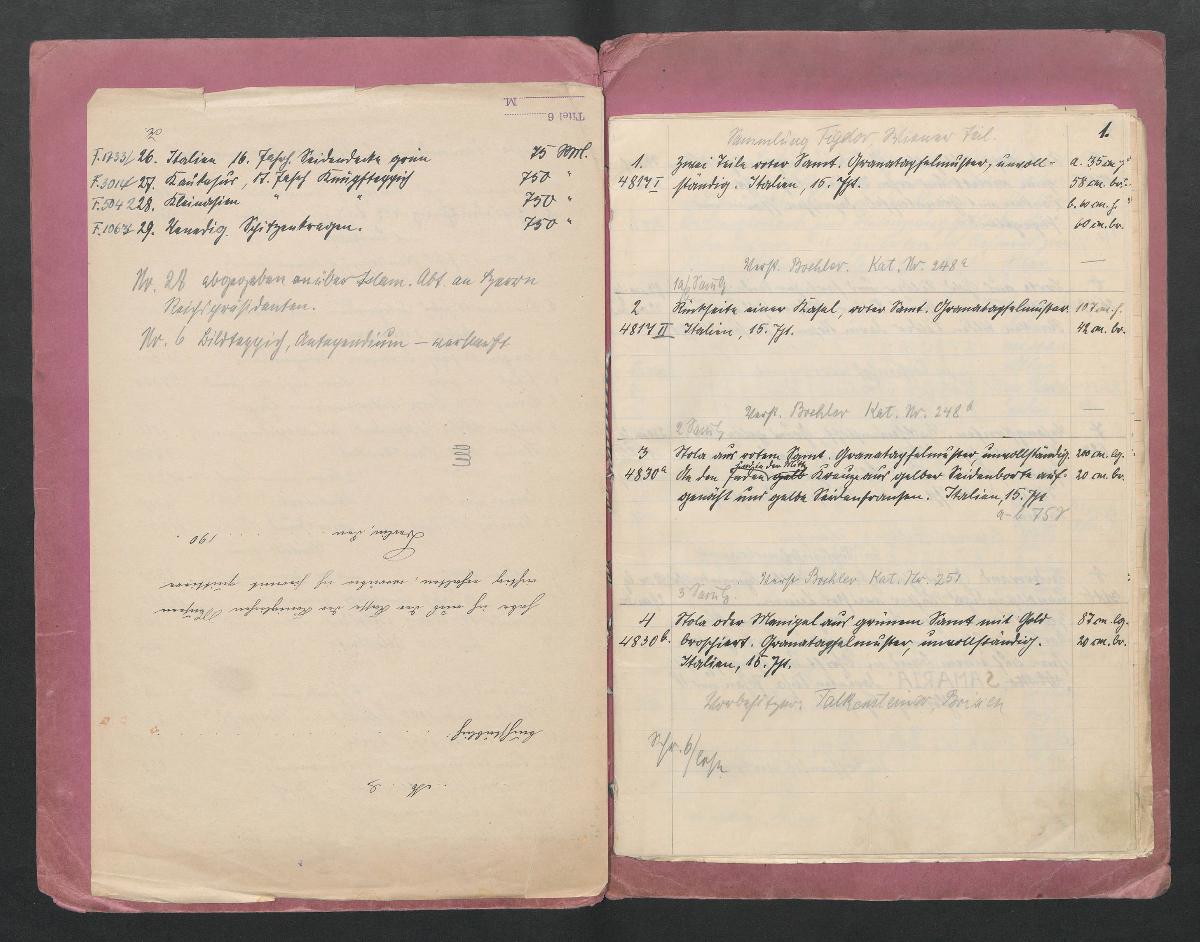 Titel 6
M.
F.1733/26. Italien 16. Jahrh. Seidendecke grün 75 Mk.
F.3014/27. Kaukasus, 17. Jahrh Knüpfteppich 750 "
F.5042 28. Kleinasien " " 750 "
F.1067/29. Venedig. Spitzenkragen. 750 "
Nr. 28 abgegeben an über Islam. Abt. an Herrn
Reichspräsidenten.
Nr. 6 Bildteppich, Antependium – verkauft
M. S
buchstäblich:
habe ich aus der Kasse der Königlichen Museen
richtig erhalten, worüber ich hiermit quittiere
Berlin, den 190
1.
Sammlung Figdor, Wiener Teil.
1. Zwei Teile roter Samt. Granatapfelmuster, unvoll- a. 35 cm h.
4817 I ständig. Italien, 15. Jht. 58 cm. br.
b. 10 cm. h.
60 cm. br.
Verst. Boehler. Kat. Nr. 248a
2 Rückseite einer Kasel, roter Samt. Granatapfelmuster. 107 cm. h.
4817 II Italien, 15. Jht. 42 cm. br.
Verst. Boehler Kat. Nr. 248b
3 Stola aus rotem Samt. Granatapfelmuster, unvollständig. 200 cm. lg.
4830a An den Enden und in der Mitte Kreuze aus gelber Seidenborte auf- 20 cm. br.
genäht und gelbe Seidenfransen. Italien, 15. Jht
a-b 75
Verst Boehler Kat. Nr. 251
4 Stola oder Manipel aus grünem Samt mit Gold 87 cm lg.
4830b. broschiert. Granatapfelmuster, unvollständig. 20 cm. br.
Italien, 15. Jht.
Vorbesitzer: Falkensteiner, Brixen
Schr. 6/